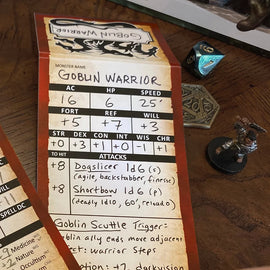 GOBLIN WARRIOR
MONSTER NAME
GOBLIN WARRIOR
AC HP SPEED
16 6 25'
FORT REF WILL
+5 +7 +3
STR DEX CON INT WIS CHR
+0 +3 +1 +0 -1 +1
TO HIT ATTACKS
+8 Dogslicer 1d6 (s)
(agile, backstabber, finesse)
+8 Shortbow 1d6 (p)
(deadly 1d10, 60', reload 0)
Goblin Scuttle Trigger:
Goblin ally ends move adjacent
Effect: Warrior Steps
+7, darkvision
WILL
SPELL DC
Medicine
Nature
Occultism